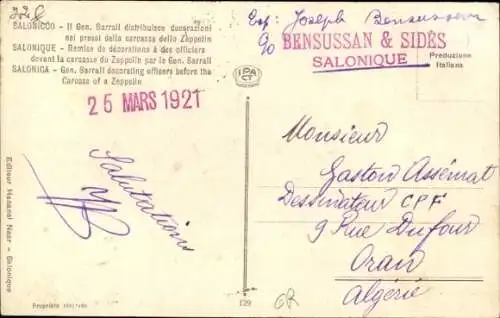 SALONICCO - Il Gen. Sarrail distribuisce decorazioni
nei pressi della carcassa dello Zeppelin
SALONIQUE - Remise de décorations à des officiers
devant la carcasse du Zeppelin par le Gen. Sarrail
SALONICA - Gen. Sarrail decorating officers before the
Carcass of a Zeppelin
25 MARS 1921
Exp: Joseph Bensussan
c/o
BENSUSSAN & SIDÈS
SALONIQUE
Produzione
Italiana
IPA
CT
Salutations
Monsieur
Gaston Assémat
Dessinateur CPF
9 Rue Dufour
Oran
Algérie
Editeur Hananel Naar - Salonique
129
6R